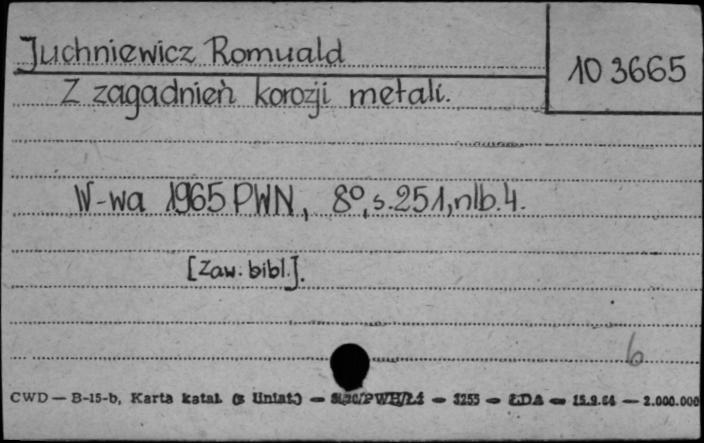 Juchniewicz Romuald
103665
Z zagadnień korozji metali.
W-wa 1965 PWN, 8º, s.251, nlb.4.
[Zaw. bibl.].
b
CWD — B-15-b, Karta katal. (z liniat.) — — 3255 — ŁDA — 15.9.64 — 2.000.000